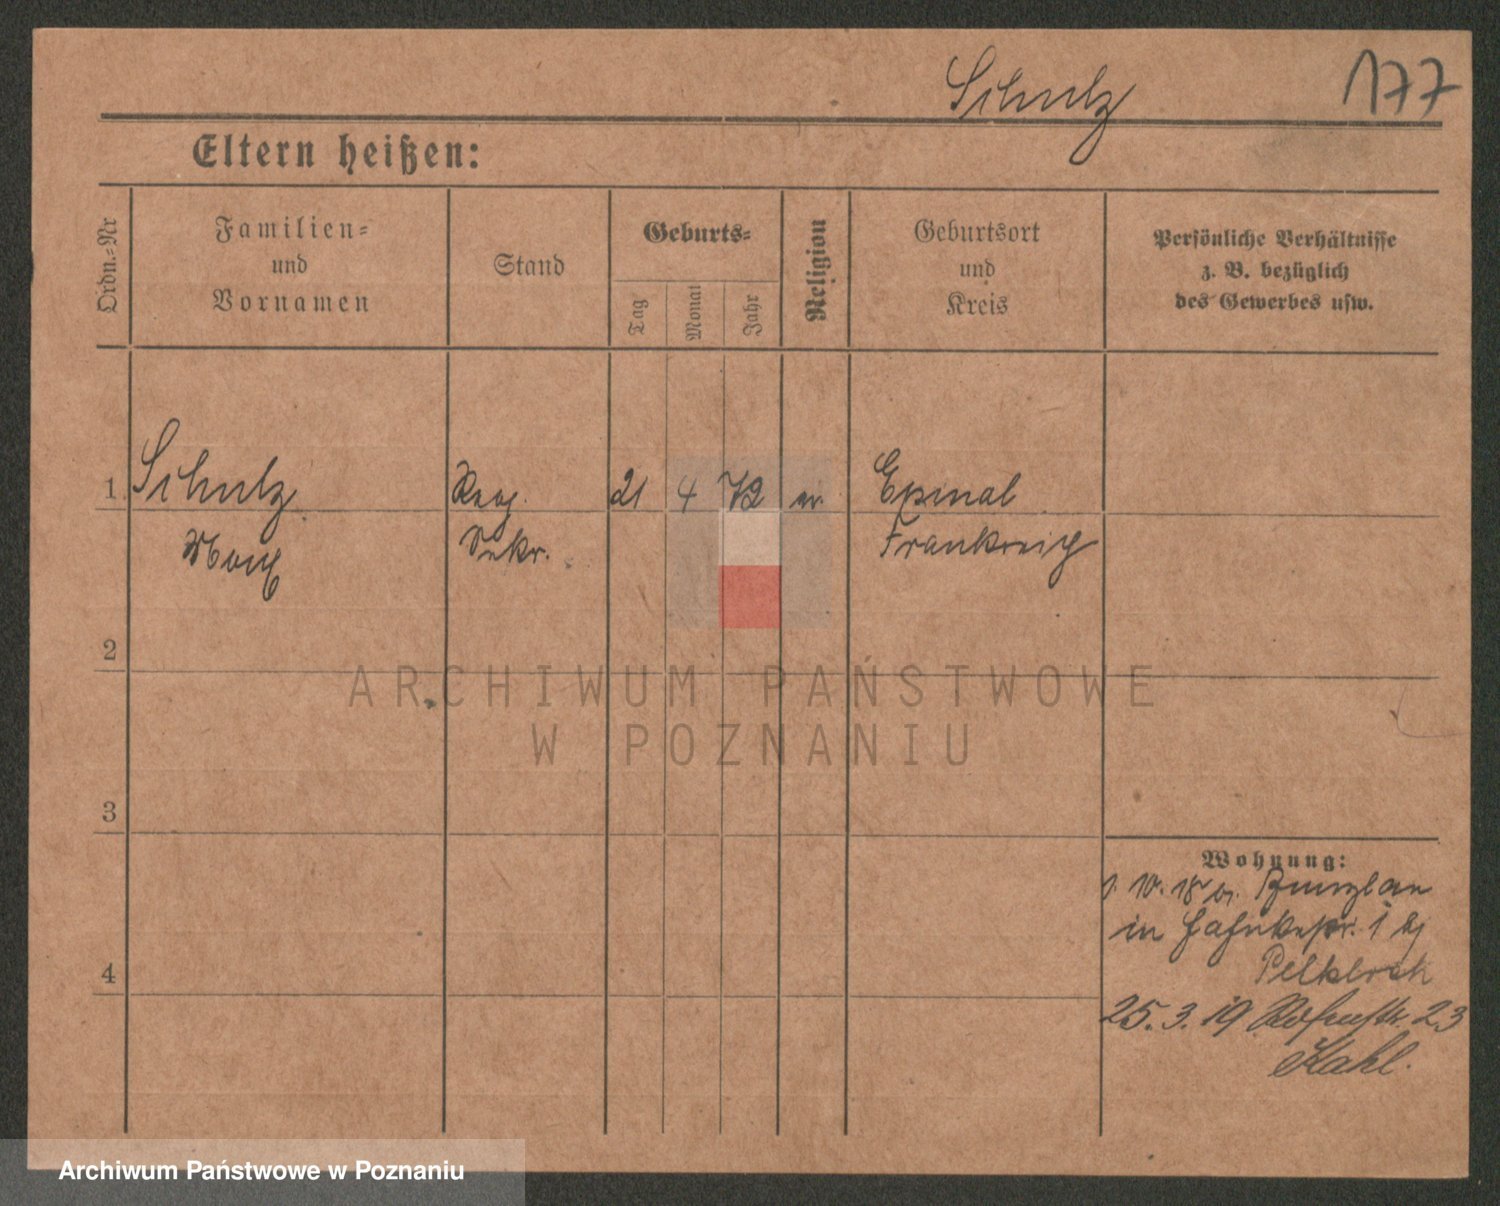 Schulz 177
Eltern heißen:
Ordn.-Nr
Familien-
und
Vornamen
Stand
Geburts-
Tag
Monat
Jahr
Religion
Geburtsort
und
Kreis
Persönliche Verhältnisse
z. B. bezüglich
des Gewerbes usw.
1 Schulz Reg. 21 4 72 ev Epinal
Max Sekr. Frankreich
2
3
4
Wohnung:
1. 10. 18 v. Bunzlau
in 1 bj
25. 3. 19 Rosenstr. 23
Kahl.
ARCHIWUM PAŃSTWOWE
W POZNANIU
Archiwum Państwowe w Poznaniu